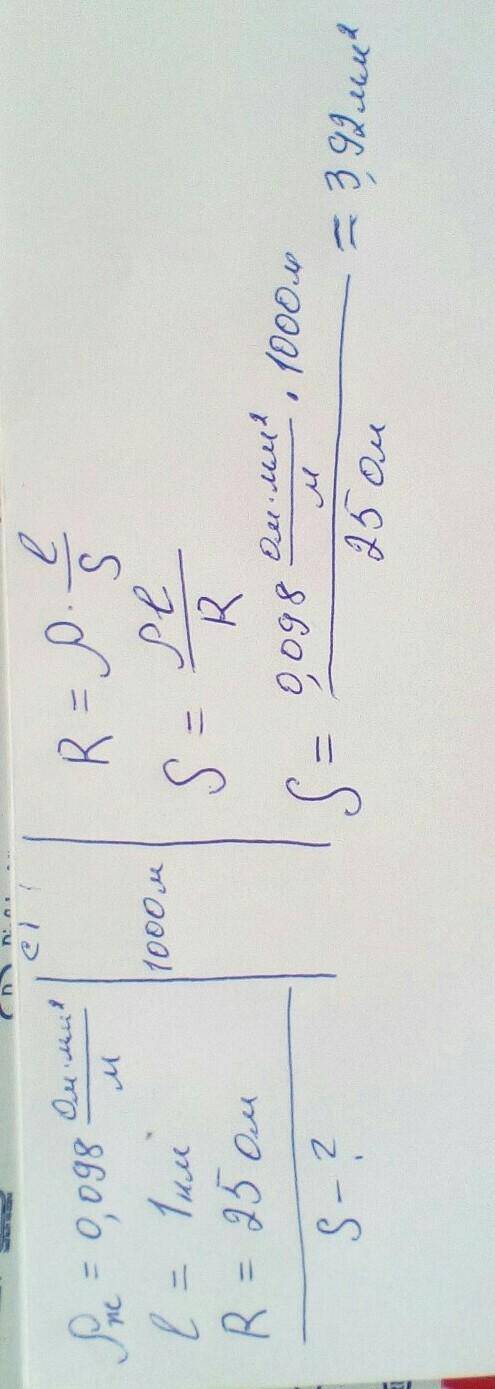 ρж = 0,098 Ом·мм²/м
l = 1 км
R = 25 Ом
S – ?
СИ
1000 м
R = ρ · l/S
S = ρl/R
S = (0,098 Ом·мм²/м · 1000 м)/(25 Ом) = 3,92 мм²